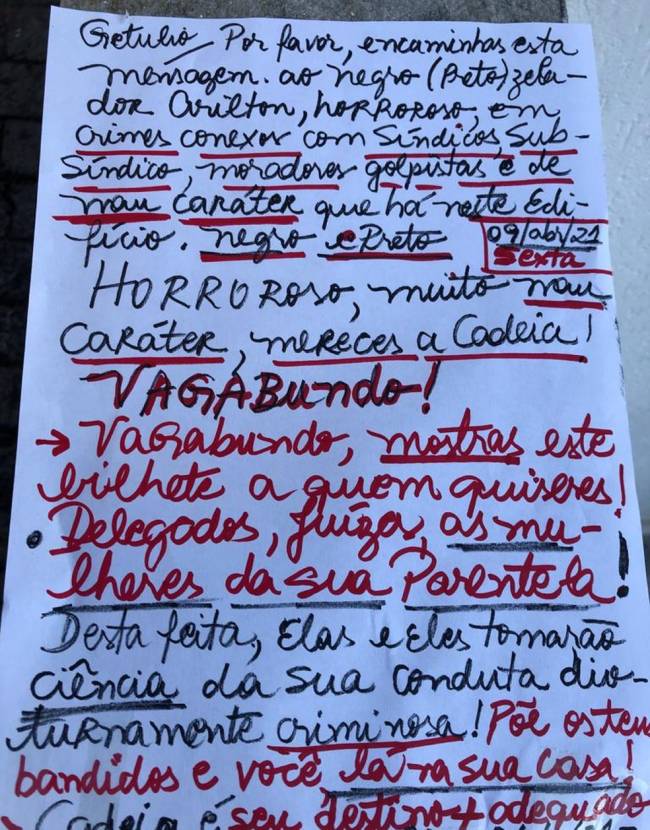 Getulio, Por favor, encaminhas esta
mensagem. ao negro (Preto) zela-
dor Arilton, horroroso, em
crimes conexos com Síndicos, Sub-
Síndico, moradores golpistas e de
mau caráter que há neste Edi-
fício. negro e Preto
09/abr/21
Sexta
HORROROSO, muito mau
Caráter, mereces a Cadeia!
VAGABundo!
→ Vagabundo, mostras este
bilhete a quem quiseres!
• Delegados, Juíza, as mu-
lheres da sua Parentela!
Desta feita, Elas e Eles tomarão
ciência da sua conduta diu-
turnamente criminosa! Põe os teus
bandidos e você lá na sua casa!
Cadeia é seu destino + adequado